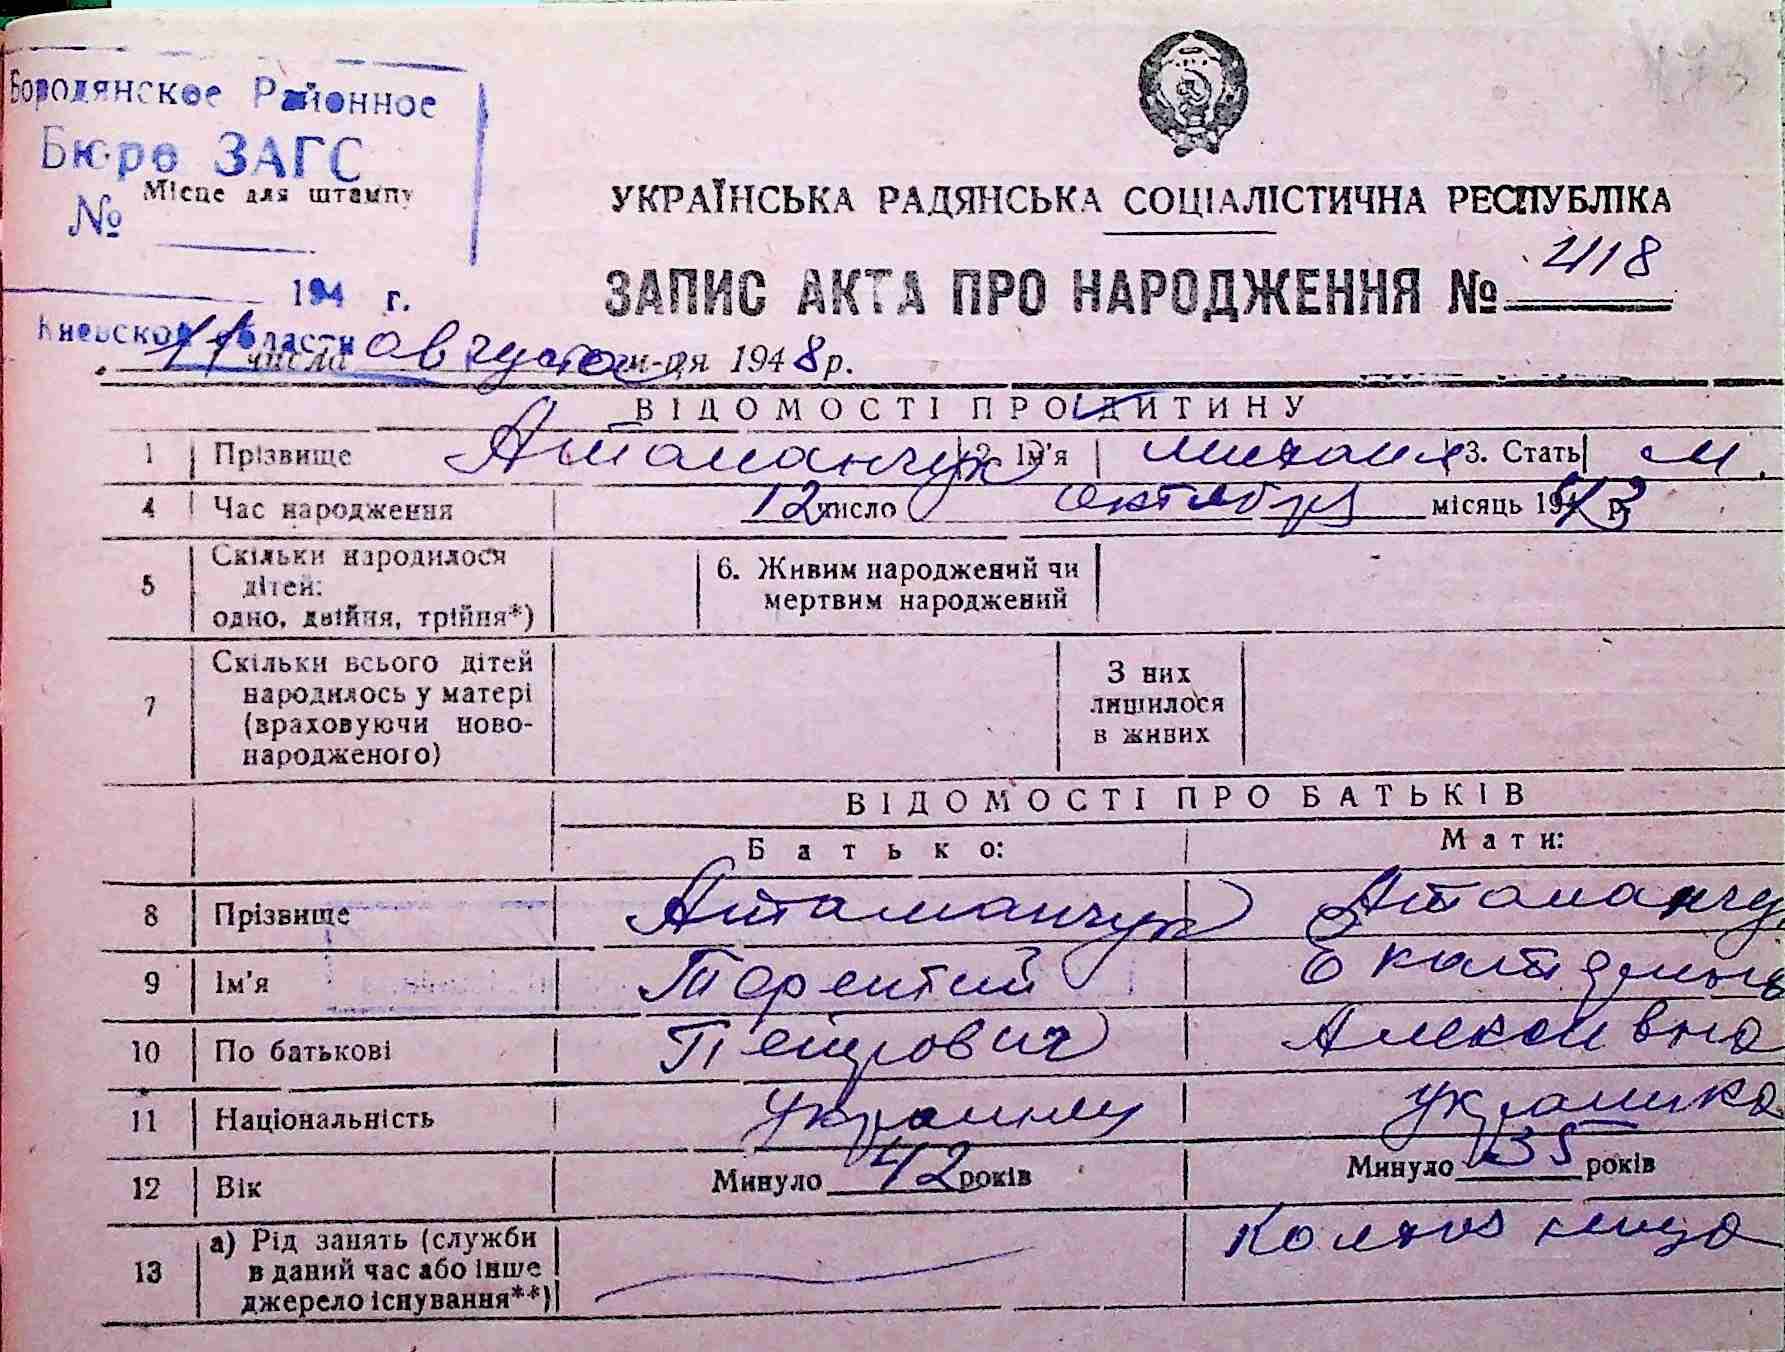 Бородянское Районное
Бюро ЗАГС
Місце для штампу
№
194 г.
Киевской области
УКРАЇНСЬКА РАДЯНСЬКА СОЦІАЛІСТИЧНА РЕСПУБЛІКА
ЗАПИС АКТА ПРО НАРОДЖЕННЯ № 418
11 числа августа м-ця 1948 р.
ВІДОМОСТІ ПРО ДИТИНУ
1 Прізвище Атаманчук 2. Ім'я Михаил 3. Стать м.
4 Час народження 12 число октября місяць 1943 р.
5 Скільки народилося дітей: одно, двійня, трійня*)
6. Живим народжений чи мертвим народжений
7 Скільки всього дітей народилось у матері (враховуючи новонародженого)
З них лишилося в живих
ВІДОМОСТІ ПРО БАТЬКІВ
Батько: Мати:
8 Прізвище Атаманчук Атаманчу
9 Ім'я Терентий Екатерина
10 По батькові Петрович Алексеевна
11 Національність украинец украинка
12 Вік Минуло 42 років Минуло 35 років
13 а) Рід занять (служби в даний час або інше джерело існування**) Колхозница